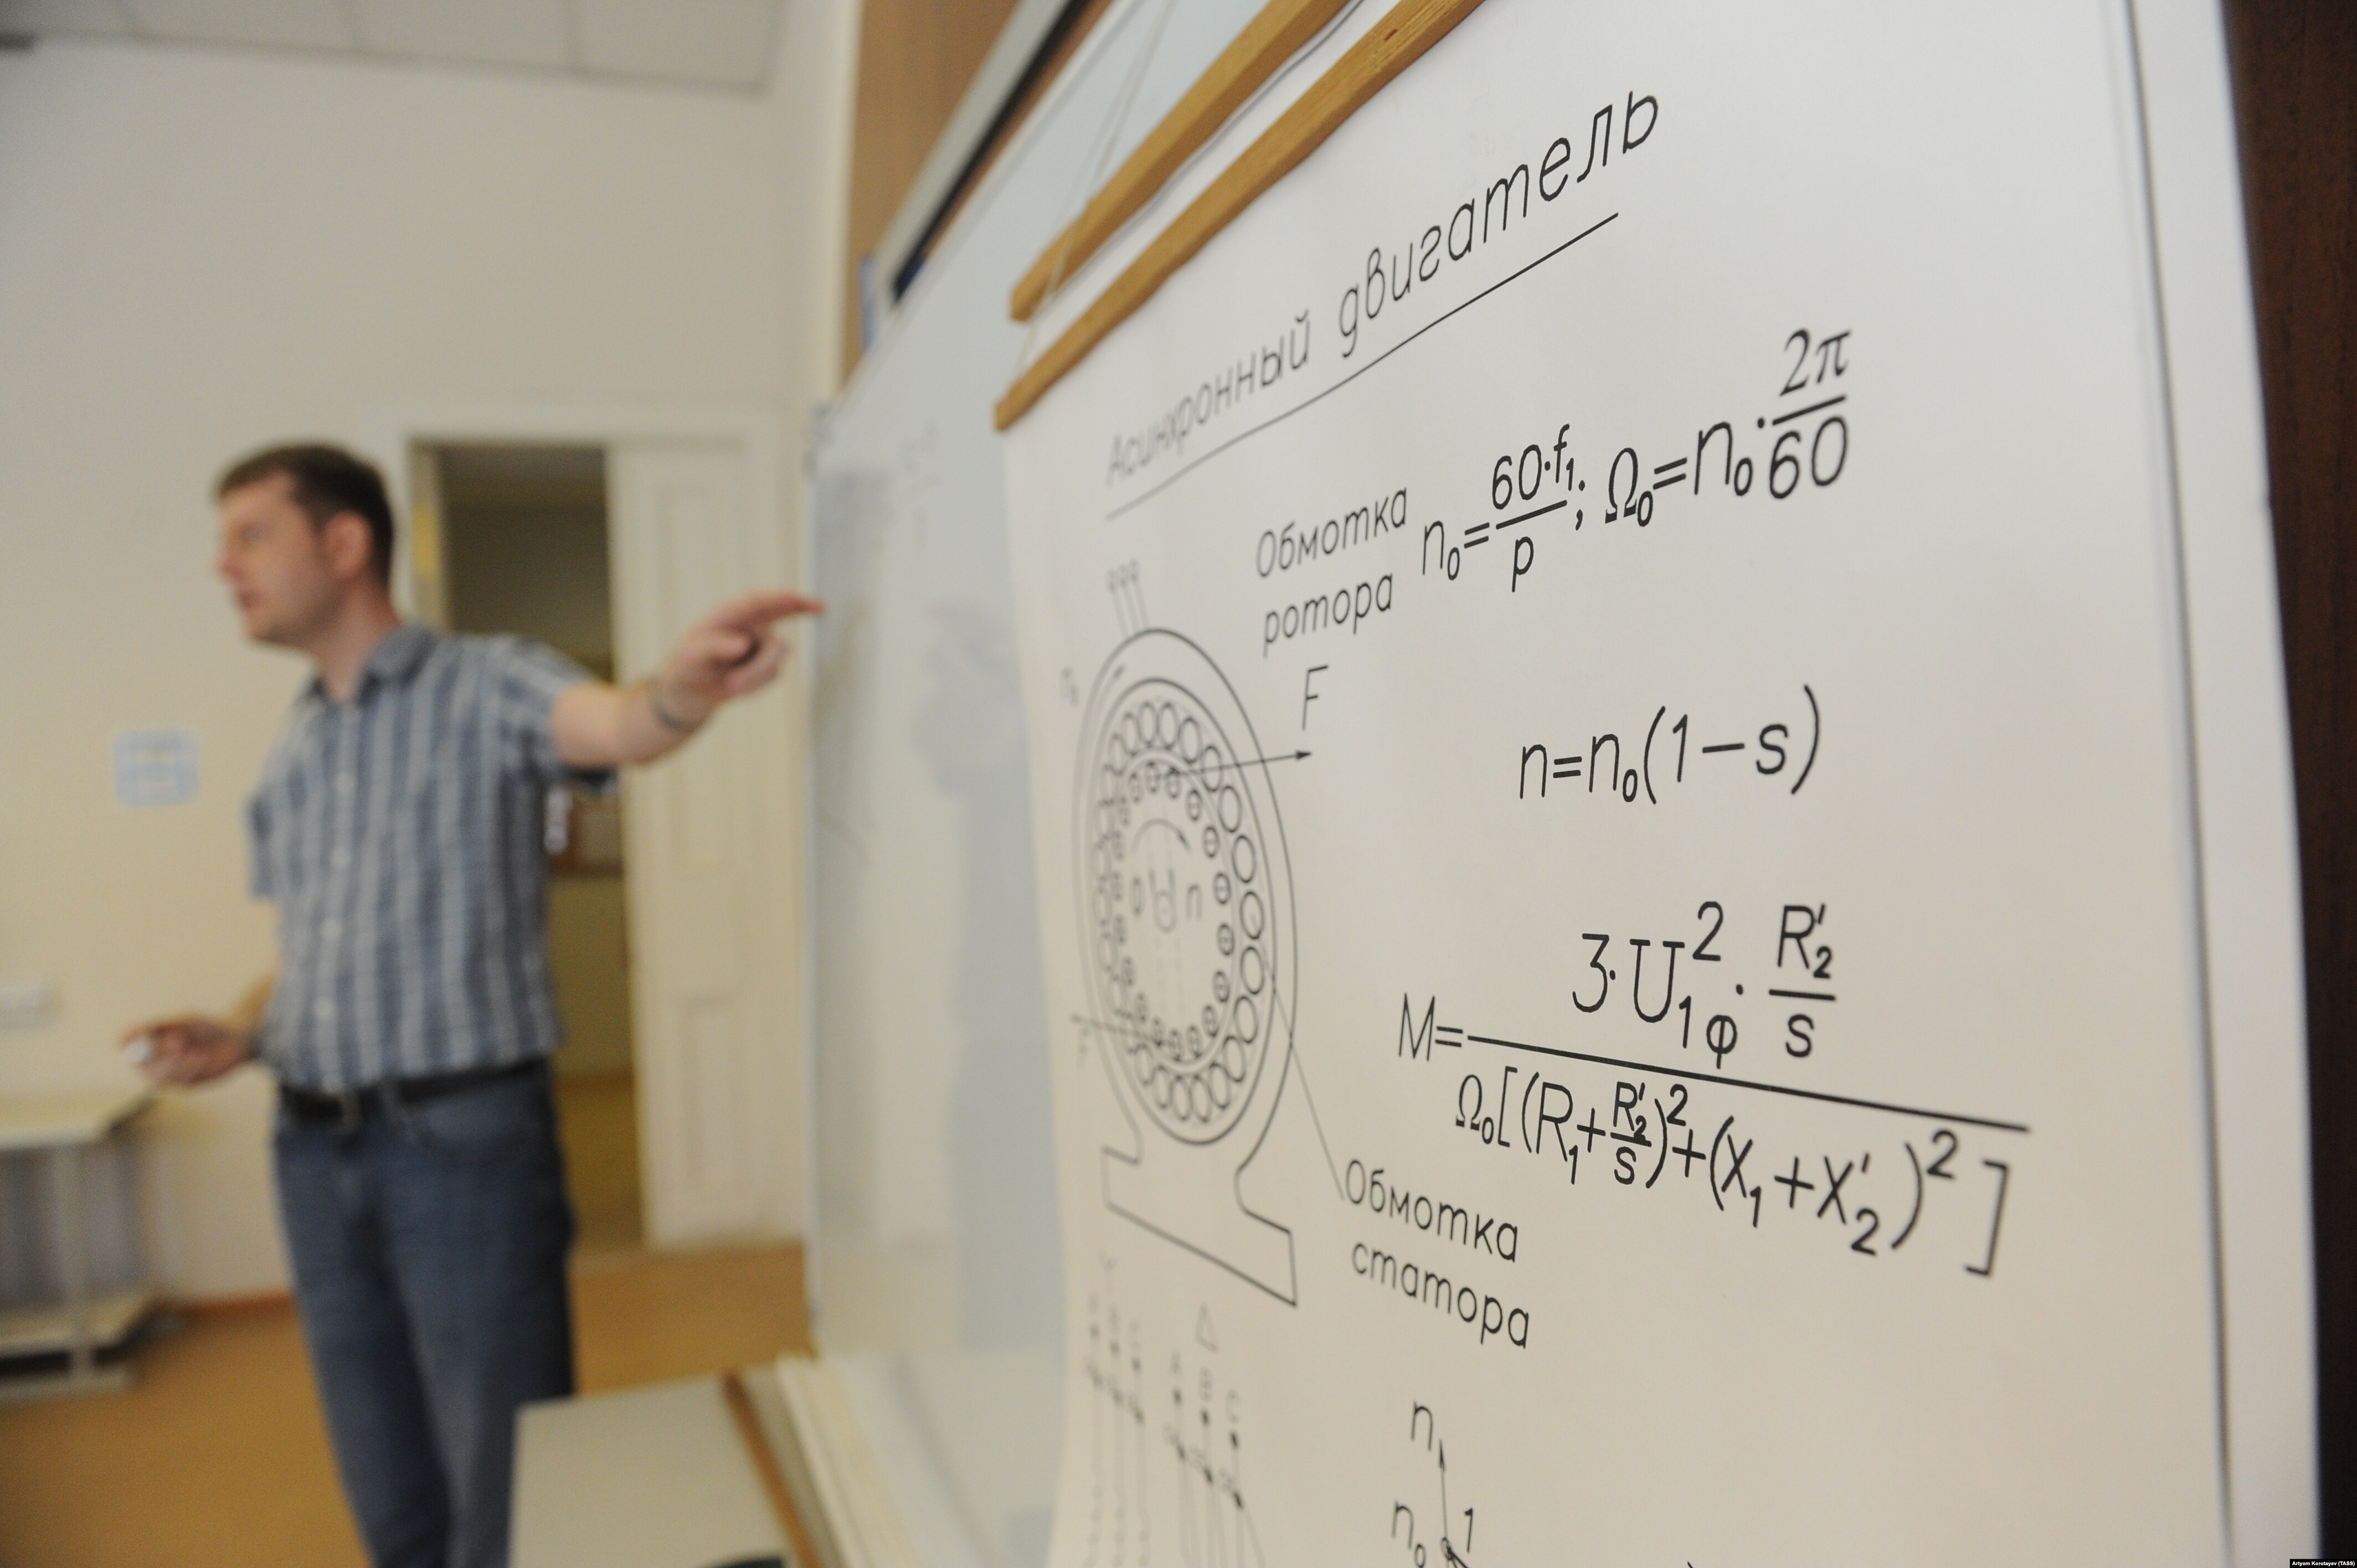 Асинхронный двигатель
Обмотка
ротора
n₀=60·f₁/p; Ω₀=n₀·2π/60
F
n=n₀(1−s)
0 n
M=3·U₁φ²·R₂′/s / Ω₀[(R₁+R₂′/s)²+(X₁+X₂′)²]
Обмотка
статора
Δ
A B C
n
n₀ 1
Artyom Korotayev (TASS)